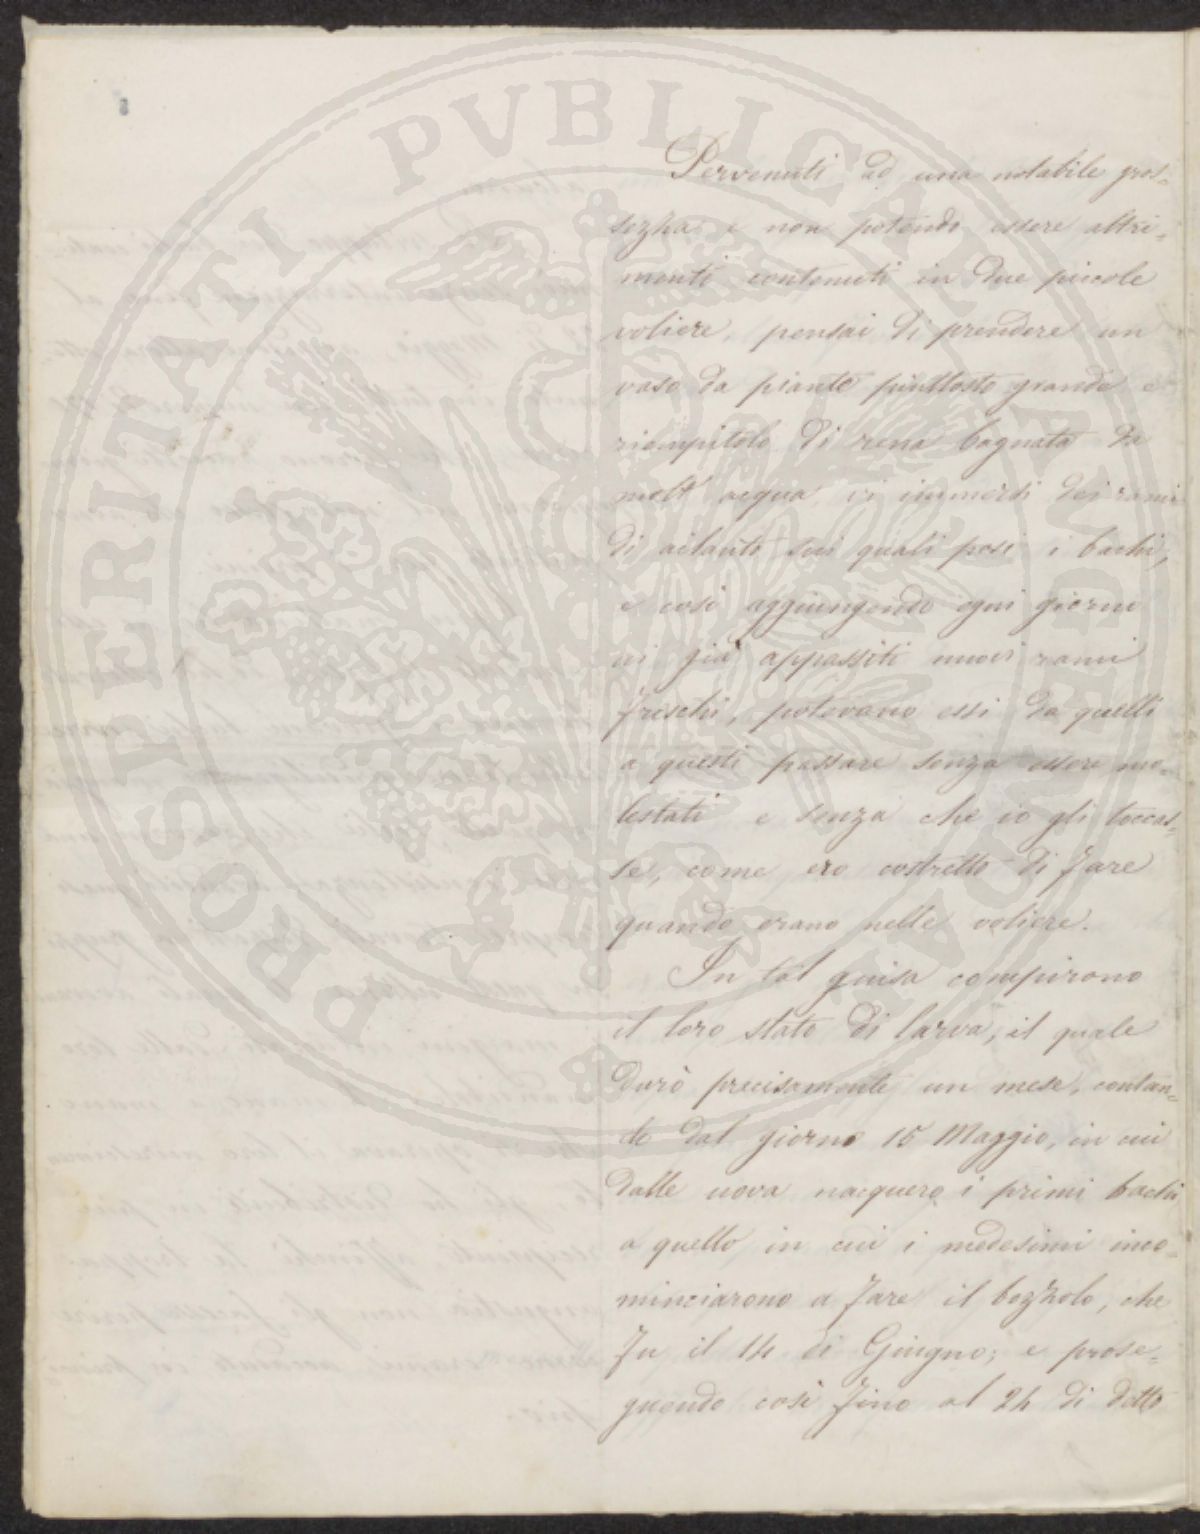 PROSPERITATI PUBLICAE AUGENDAE
Pervenuti ad una notabile gros=
sezza e non potendo essere altri=
menti contenuti in due piccole
voliere, pensai di prendere un
vaso da piante piuttosto grande e
riempitolo di rena bagnata da
molt' acqua, vi immersi dei rami
di ailanto sui quali posi i bachi,
e così aggiungendo ogni giorno
ai già appassiti nuovi rami
freschi, potevano essi da quelli
a questi passare senza essere mo=
lestati e senza che io gli toccas=
se, come ero costretto di fare
quando erano nelle voliere.
In tal guisa compirono
il loro stato di larva, il quale
durò precisamente un mese, contan=
do dal giorno 15 Maggio, in cui
dalle uova nacquero i primi bachi
a quello in cui i medesimi inco=
minciarono a fare il bozzolo, che
fu il 14 di Giugno; e prose=
guendo così fino al 24 di detto